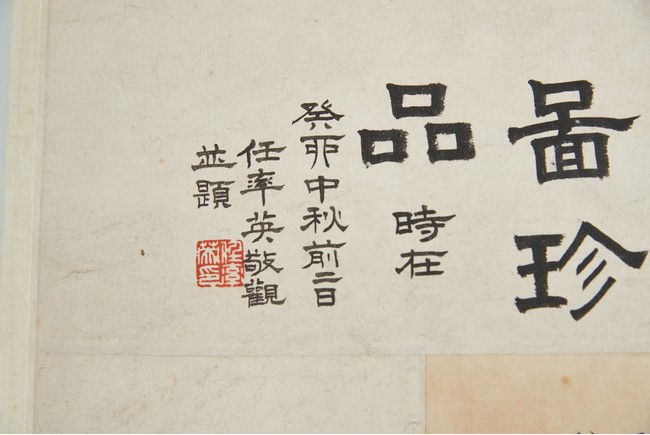 啚珍
品 時在
癸卯中秋前二日
任率英敬觀
並題
任率英印